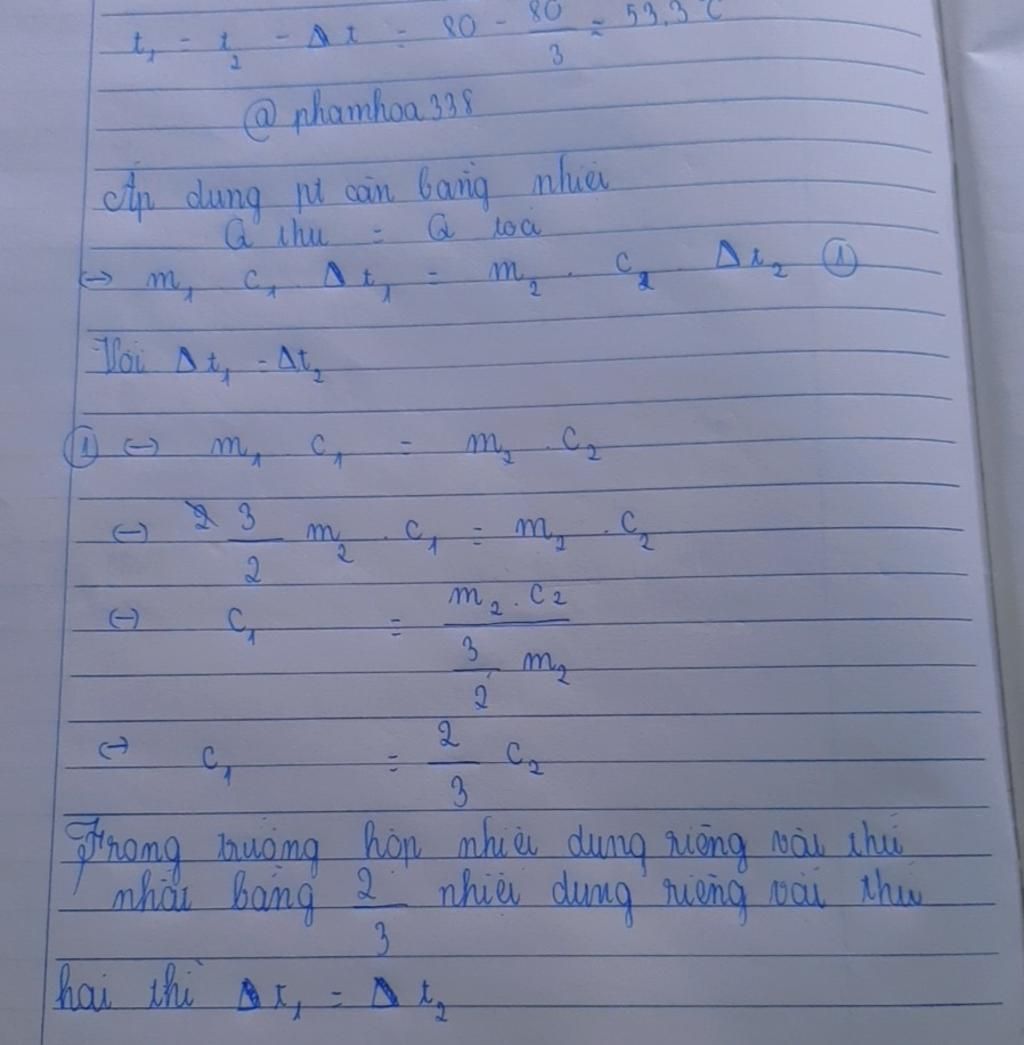 t₁ = t₂ - Δt = 80 - 80/3 ≈ 53,3°C
@phamhoa338
Áp dụng pt cân bằng nhiệt
Q thu = Q toả
↔ m₁ c₁ Δt₁ = m₂ . c₂ Δt₂ ①
Với Δt₁ = Δt₂
① ↔ m₁ c₁ = m₂ . c₂
↔ 3/2 m₂ . c₁ = m₂ . c₂
↔ c₁ = m₂ . c₂ / 3/2 m₂
↔ c₁ = 2/3 c₂
Trong trường hợp nhiệt dung riêng vật thứ
nhất bằng 2/3 nhiệt dung riêng vật thứ
hai thì Δt₁ = Δt₂